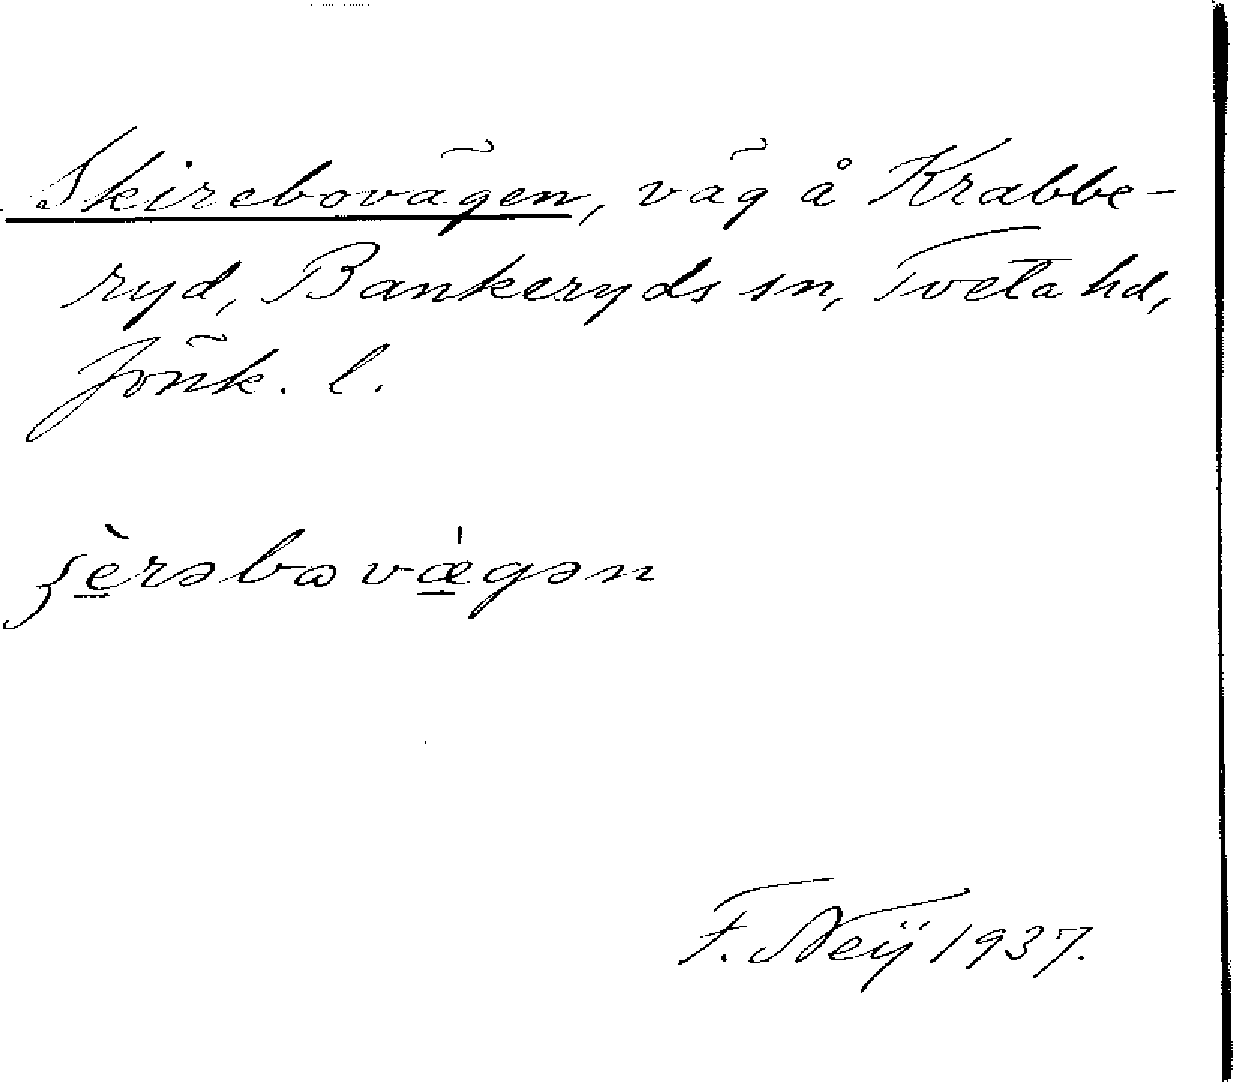 Skirebovägen, väg å Krabbe-
ryd, Bankeryds sn, Tveta hd,
Jönk. l.
ʒèrəbω vǽgən
F. Neÿ 1937.